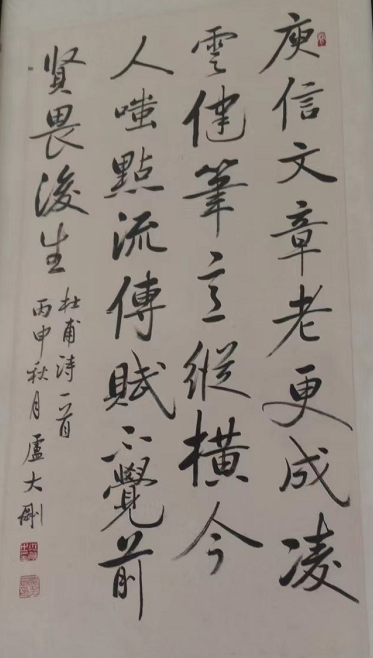 庾信文章老更成凌
雲健筆意縱橫今
人嗤點流傳賦不覺前
賢畏後生
杜甫诗一首
丙申秋月盧大剛